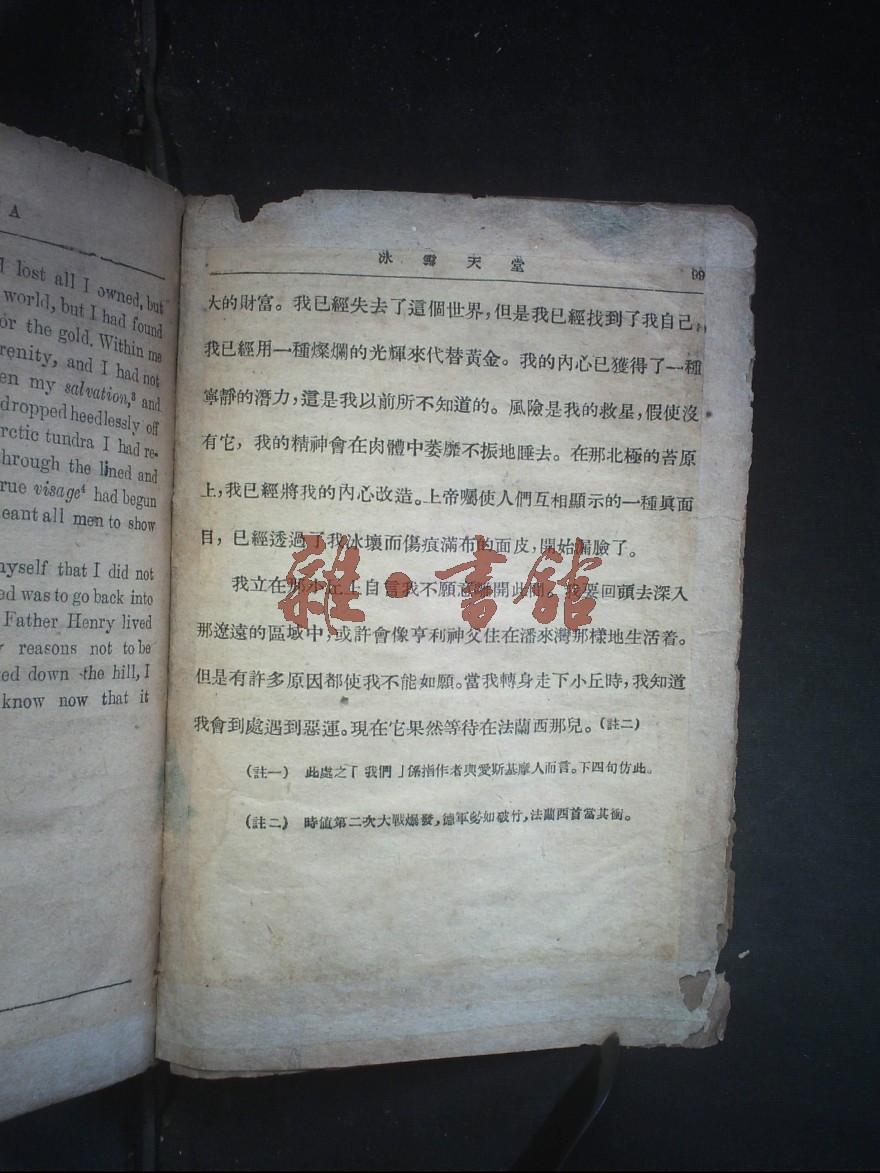 A
I lost all I owned, but
world, but I had found
or the gold. Within me
renity, and I had not
en my salvation,³ and
dropped heedlessly off
rctic tundra I had re-
hrough the lined and
rue visage⁴ had begun
eant all men to show
nyself that I did not
ed was to go back into
Father Henry lived
reasons not to be
ed down the hill, I
know now that it
冰雪天堂 99
大的財富。我已經失去了這個世界,但是我已經找到了我自己,
我已經用一種燦爛的光輝來代替黃金。我的內心已獲得了一種
寧靜的潛力,這是我以前所不知道的。風險是我的救星,假使沒
有它,我的精神會在肉體中萎靡不振地睡去。在那北極的苔原
上,我已經將我的內心改造。上帝囑使人們互相顯示的一種眞面
目,已經透過了我冰壞而傷痕滿布的面皮,開始漏臉了。
我立在那小丘上自言我不願意離開此間。我要回頭去深入
那遼遠的區域中,或許會像亨利神父住在潘來灣那樣地生活着。
但是有許多原因都使我不能如願。當我轉身走下小丘時,我知道
我會到處遇到惡運。現在它果然等待在法蘭西那兒。(註二)
(註一) 此處之「我們」係指作者與愛斯基摩人而言。下四句仿此。
(註二) 時値第二次大戰爆發,德軍勢如破竹,法蘭西首當其衝。
雜·書館